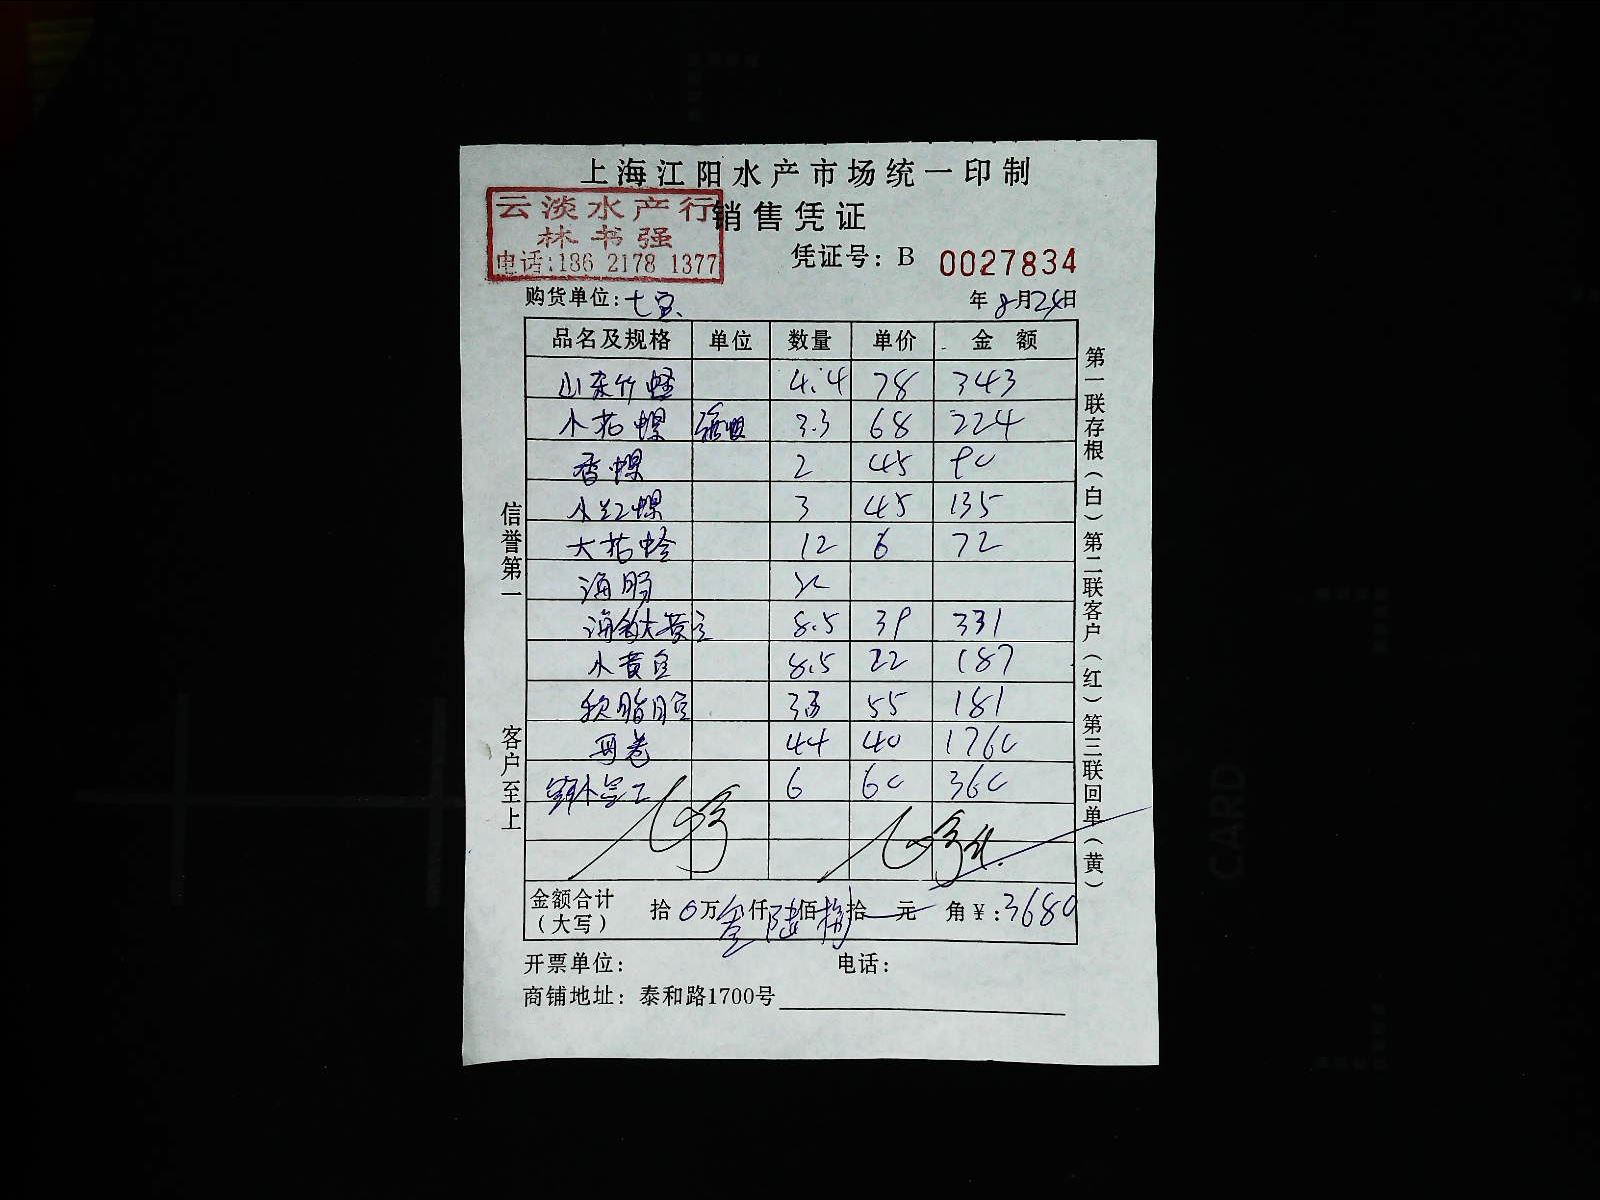 上海江阳水产市场统一印制
云淡水产行
林书强
电话:186 2178 1377
销售凭证
凭证号：B 0027834
购货单位：七宝 年8月24日
品名及规格 单位 数量 单价 金额
山东竹蛏 4.4 78 343
小花螺 3.3 68 224
香螺 2 45 90
小红螺 3 45 135
大花蛤 12 6 72
海肠
海鲜大黄 8.5 39 331
小黄鱼 8.5 22 187
33 55 181
44 40 1760
6 60 360
金额合计（大写） 拾 0万 叁仟 陆佰 捌拾 元 角 ¥：3680
开票单位： 电话：
商铺地址：泰和路1700号
信誉第一 客户至上
第一联存根（白）第二联客户（红）第三联回单（黄）
CARD